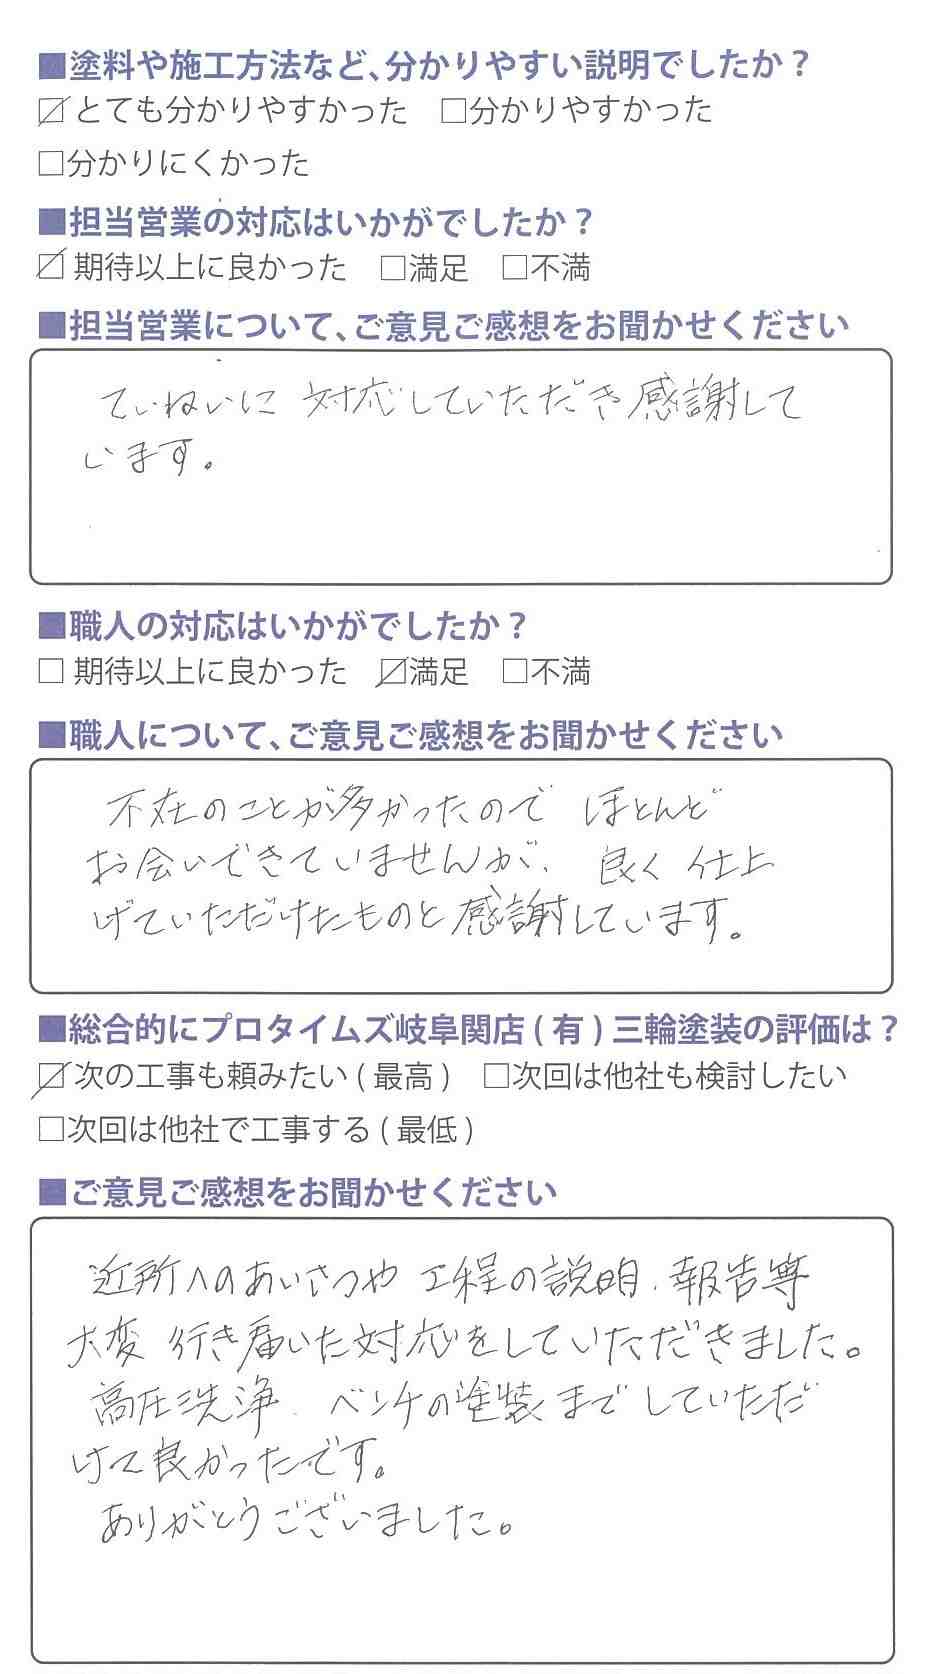 ■塗料や施工方法など、分かりやすい説明でしたか？
☑とても分かりやすかった　□分かりやすかった
□分かりにくかった
■担当営業の対応はいかがでしたか？
☑期待以上に良かった　□満足　□不満
■担当営業について、ご意見ご感想をお聞かせください
ていねいに 対応していただき感謝して
います。
■職人の対応はいかがでしたか？
□期待以上に良かった　☑満足　□不満
■職人について、ご意見ご感想をお聞かせください
不在のことが多かったので ほとんど
お会いできていませんが、良く仕上
げていただけたものと感謝しています。
■総合的にプロタイムズ岐阜関店(有)三輪塗装の評価は？
☑次の工事も頼みたい(最高)　□次回は他社も検討したい
□次回は他社で工事する(最低)
■ご意見ご感想をお聞かせください
近所へのあいさつや 工程の説明、報告等
大変 行き届いた対応をしていただきました。
高圧洗浄、ベンチの塗装までしていただ
けて良かったです。
ありがとうございました。